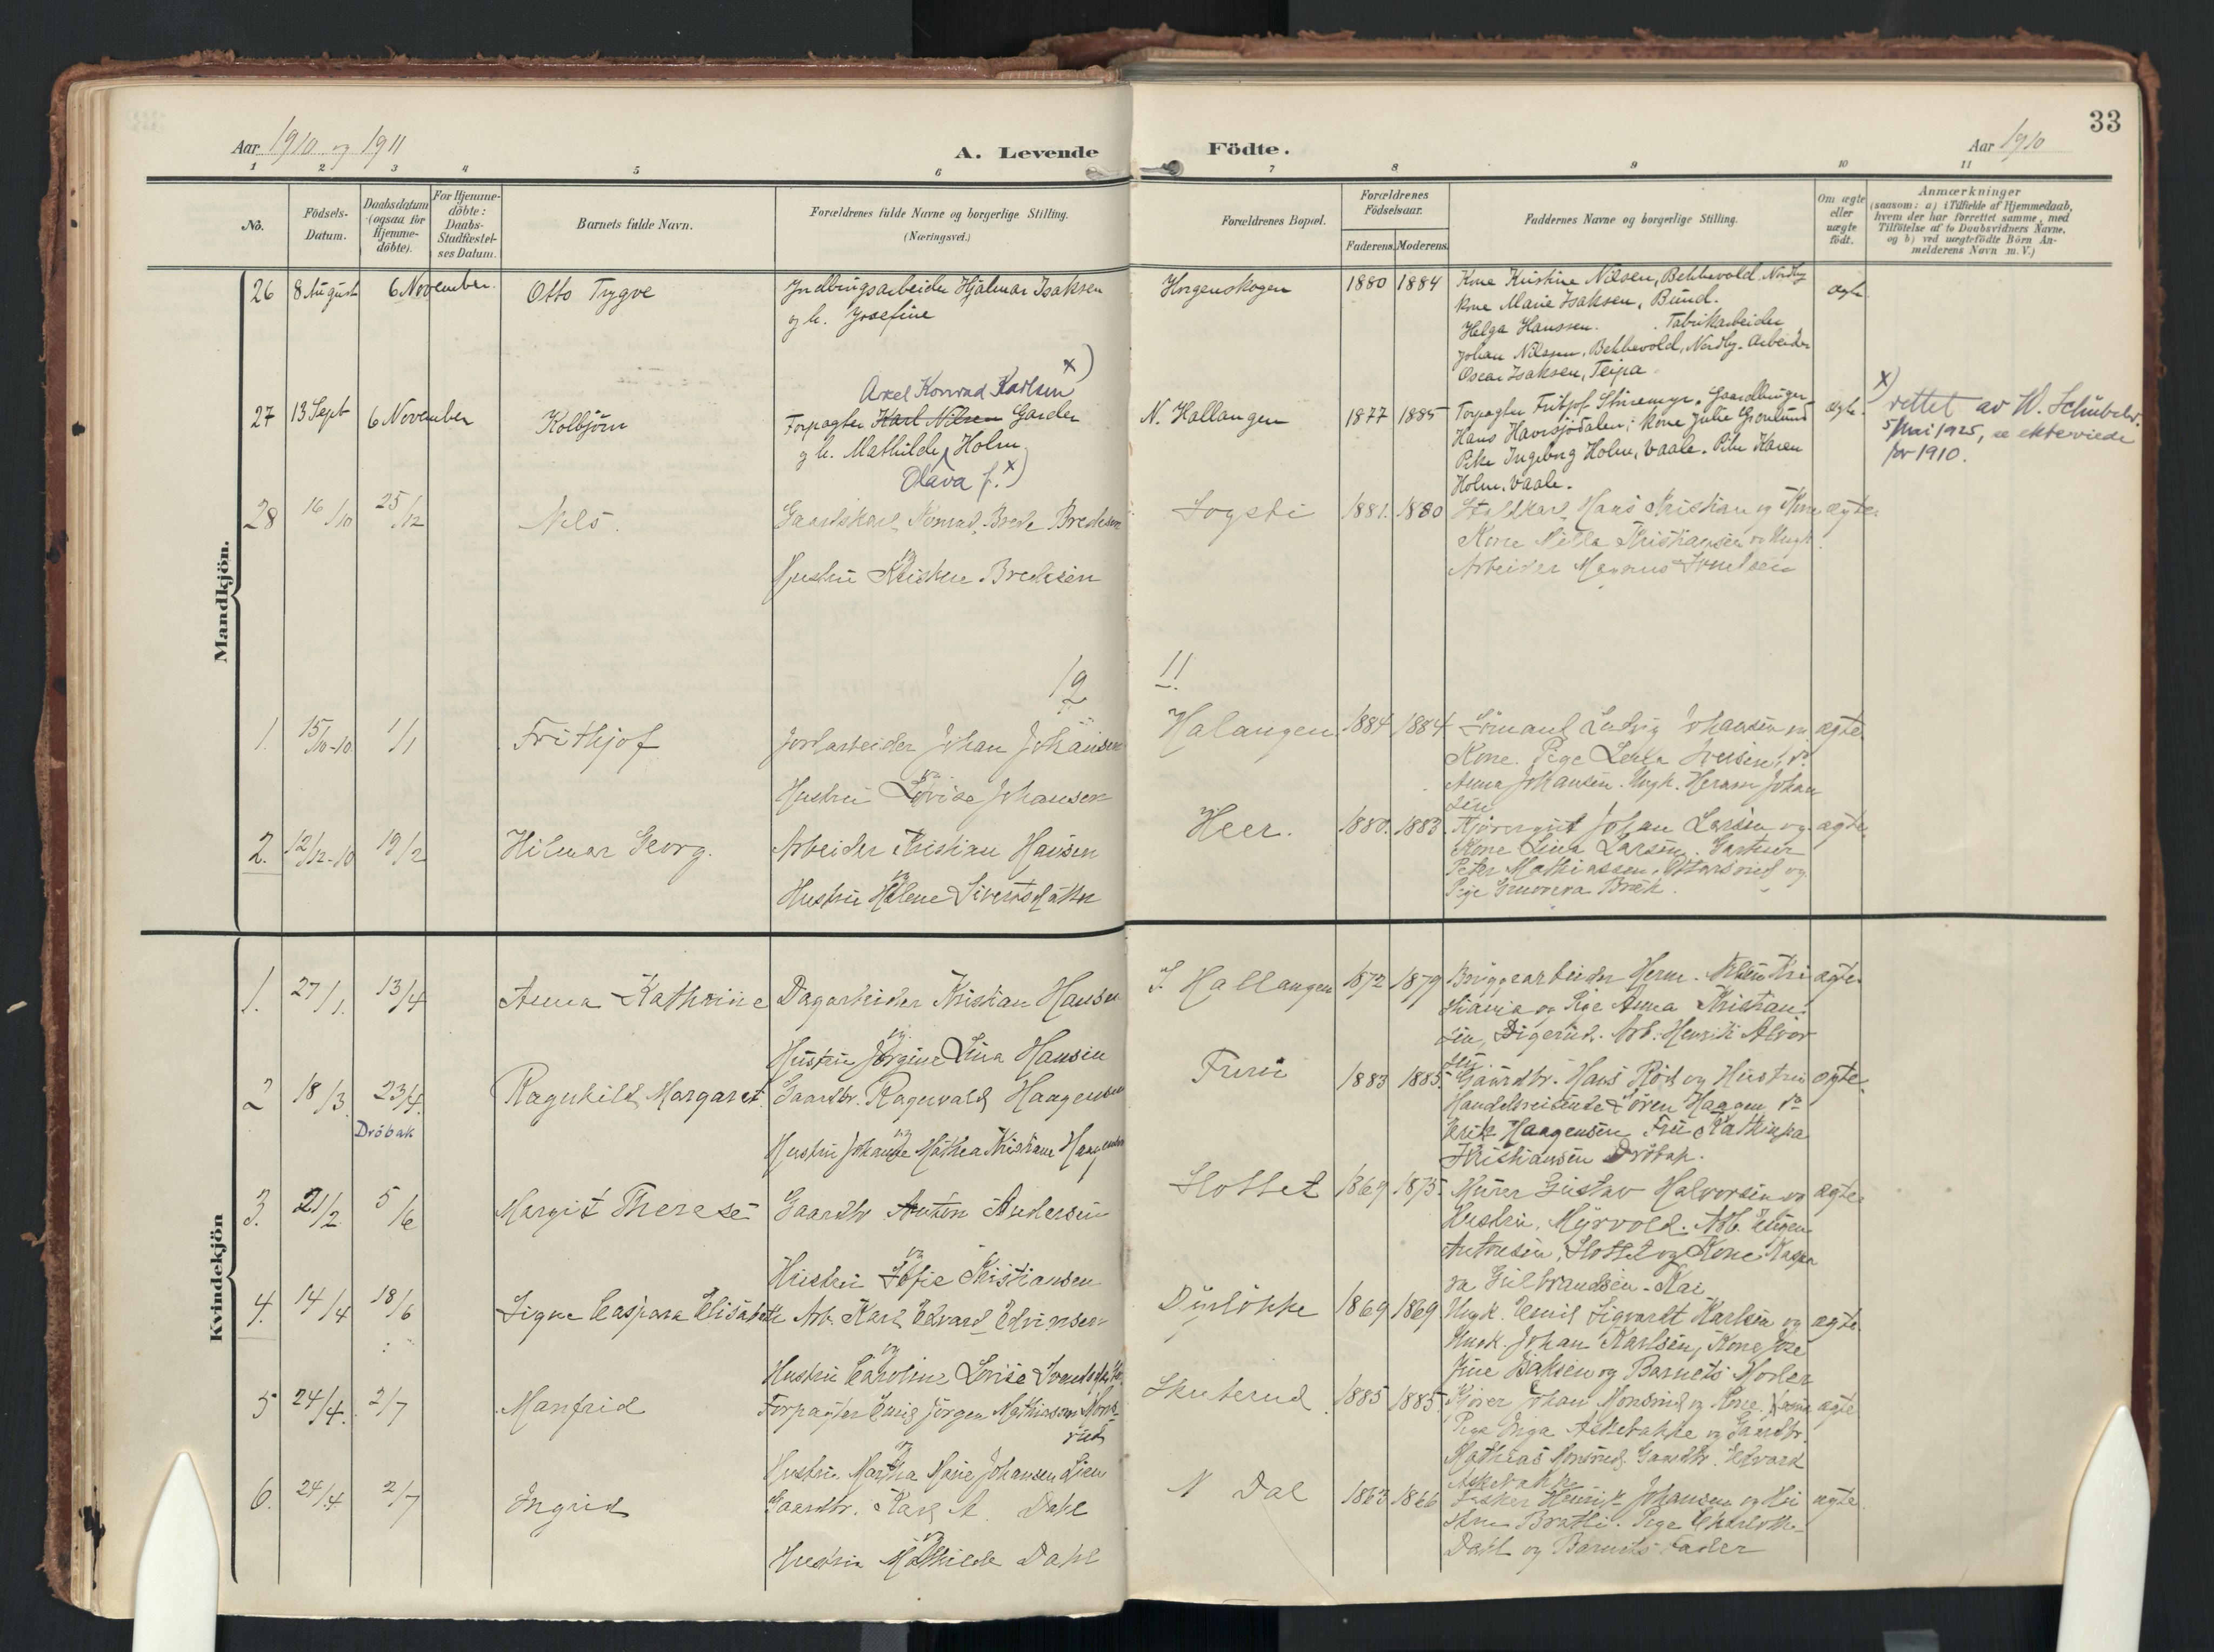 33
Aar 1910 og 1911
A. Levende
Födte.
Aar 1910
1 2 3 4 5 6 7 8 9 10 11
No.
Födsels-
Datum.
Daabsdatum
(ogsaa for
Hjemme-
döbte).
For Hjemme-
döbte:
Daabs-
Stadfæstel-
ses Datum.
Barnets fulde Navn.
Forældrenes fulde Navne og borgerlige Stilling.
(Næringsvei.)
Forældrenes Bopæl.
Forældrenes
Födselsaar.
Faderens. Moderens.
Faddernes Navne og borgerlige Stilling.
Om ægte
eller
uægte
födt.
Anmærkninger
(saasom: a) i Tilfælde af Hjemmedaab,
hvem der har forrettet samme, med
Tilföielse af to Daabsvidners Navne,
og b) ved uægtefödte Börn An-
melderens Navn m. V.)
Mandkjön.
26 8 August 6 November Otto Trygve
Hjalmar Isaksen
og h. Josefine
Horgenskogen 1880 1884
Kone Kristine Nilsen, Bekkevold. Nordby
Kone Marie Isaksen, Bund.
Helga Hanssen. Fabrikarbeider
Johan Nilssen, Bekkevold, Nordby. Arbeider
Oscar Isaksen, Teipa.
ægte
27 13 Sept 6 November Kolbjörn
Axel Konrad Karlsen x)
Forpagter Karl Nilsen Garder
og h. Mathilde Holm
Olava f. x)
N. Hallangen 1877 1885
Forpagter Fritjof Gaardbruger
Hans Havsjödalen; Kone Julie Grønlund
Pike Ingeborg Holm, Vaale. Pike Karen
Holm, Vaale.
ægte
x) rettet av W. Schübeler.
5 Mai 1925, se ekteviede
for 1910.
28 16/10 25/12 Nils.
Gaardskarl Konrad Brede Bredesen
og
Hustru Kristine Bredesen
Sogsti 1881. 1880
Staldkarl Hans Kristian og Kone
Kone Kristiansen og Ungk.
Arbeider Magnus
ægte.
19 11
1. 15/10-10 1/1 Frithjof
Jordarbeider Johan Johansen
og
Hustru Lovise Johansen
Halangen 1884 1884
Ludvig Johansen og
Kone. Pige
Anna Johansen. Ungk. Herman Johan
sen
ægte.
2. 12/12-10 19/2 Hilmar Georg.
Arbeider Kristian Hansen
og
Hustru Helene Sivertsdatter
Heer. 1880. 1883.
Johan Larsen og
Kone Lina Larsen. Gartner
Peter Mathiassen, Ottarsrud og
Pige
ægte.
Kvindekjön
1. 27/1. 13/4 Anna Kathrine
Dagarbeider Kristian Hansen
og
Hustru Jørgine Lina Hansen
S. Hallangen 1872 1879
Bryggearbeider Herm. Nilsen Kri
stiania og Pige Anna Kristian
sen, Digerud. Arb. Henrik Alvor
sen
ægte.
2 18/3. 23/4. Ragnhild Margaret.
Dröbak
Gaardbr. Ragnvald Haagensen
og
Hustru Johanne Mathea Kristiane Haagensen
Furu 1883 1885.
Gaardbr. Hans Röd og Hustru
Handelsreisende Sören Haagen
Erik Haagensen Fru Kathinka
Kristiansen Dröbak.
ægte.
3. 21/2 5/6 Margit Therese
Gaardbr Anton Andersen
og
Hustru Sofie Kristiansen
Slottet 1869 1875.
Murer Gustav Halvorsen og
Hustru, Myrvold. Arb. Eugen
Antonsen, Slottet og Kone Kaspa
ra Gulbrandsen - Kai
ægte.
4. 14/4 18/6 Signe Caspara Elisabeth
Arb. Karl Edvard Edvinsen
og
Hustru Caroline Lovise
Dyrløkke 1869 1869.
Ungk. Emil Sigvardt Karlsen og
Ungk. Johan Karlsen, Kone Jose
fine Isaksen og Barnets Moder
ægte.
5 24/4. 2/7 Manfrid
Forpagter Emil Jörgen Mathiassen Mons
rud
og
Hustru Martha Marie Johansen Lien
Skuterud 1885 1885.
Johan Monsrud og Kone
Pige Inga Askebakke og Gaardbr.
Mathias Monsrud. Gaardbr. Edvard
Askebakke
ægte
6. 24/4 2/7 Ingrid
Gaardbr. Karl A. Dahl
og
Hustru Mathilde Dahl
N Dal 1863 1866
Fisker Henrik Johansen og Hu
stru Bratli. Pige Charlotte
Dahl og Barnets Fader
ægte.